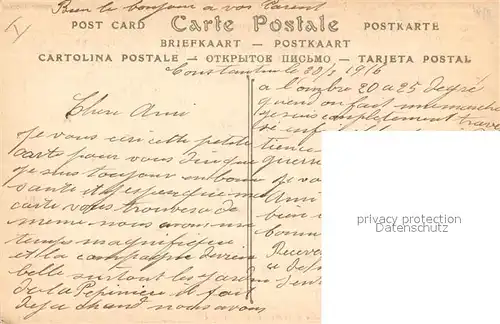 Bien le bonjour a vos Parent
POST CARD Carte Postale POSTKARTE
BRIEFKAART — POSTKAART
CARTOLINA POSTALE — ОТКРЫТОЕ ПИСЬМО — TARJETA POSTAL
Constantine le 20/2 1916
Cher Ami
Je vous ecri cette petite
carte pour vous dire que
je suis toujour en bonne
sante et J'espere que ma
carte vous trouvera de
meme nous avons un
temps magnifique
et la campagne devien
belle surtout les Jardin
de la Pepiniere il fait
deja chaud nous avons
a l'ombre 20 a 25 degré
quand on fait
je suis completement
tience
guerre
je vo
Ami
bien
bonne
Receve
privacy protection
www.oldthing.com